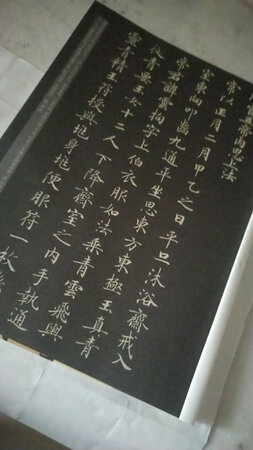 五帝內思上法
常以正月二月甲乙之日平旦沐浴齋戒入
室東向叩齒九通平坐思東方東極玉真青
帝君諱雲拘字上伯衣服如法乘青雲飛輿
從青要玉女十二人下降齋室之內手執通
靈青精玉符授與兆身兆便服符一枚